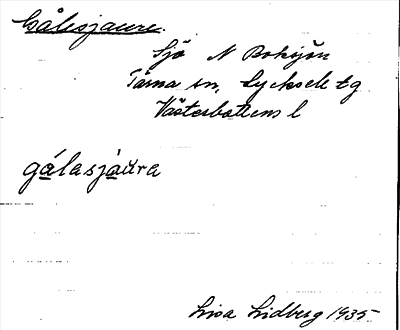 Gålesjaure.
Sjö N Boksjön
Tärna sn, Lycksele tg
Västerbottens l
gálasjàŭra
Lisa Lidberg 1935